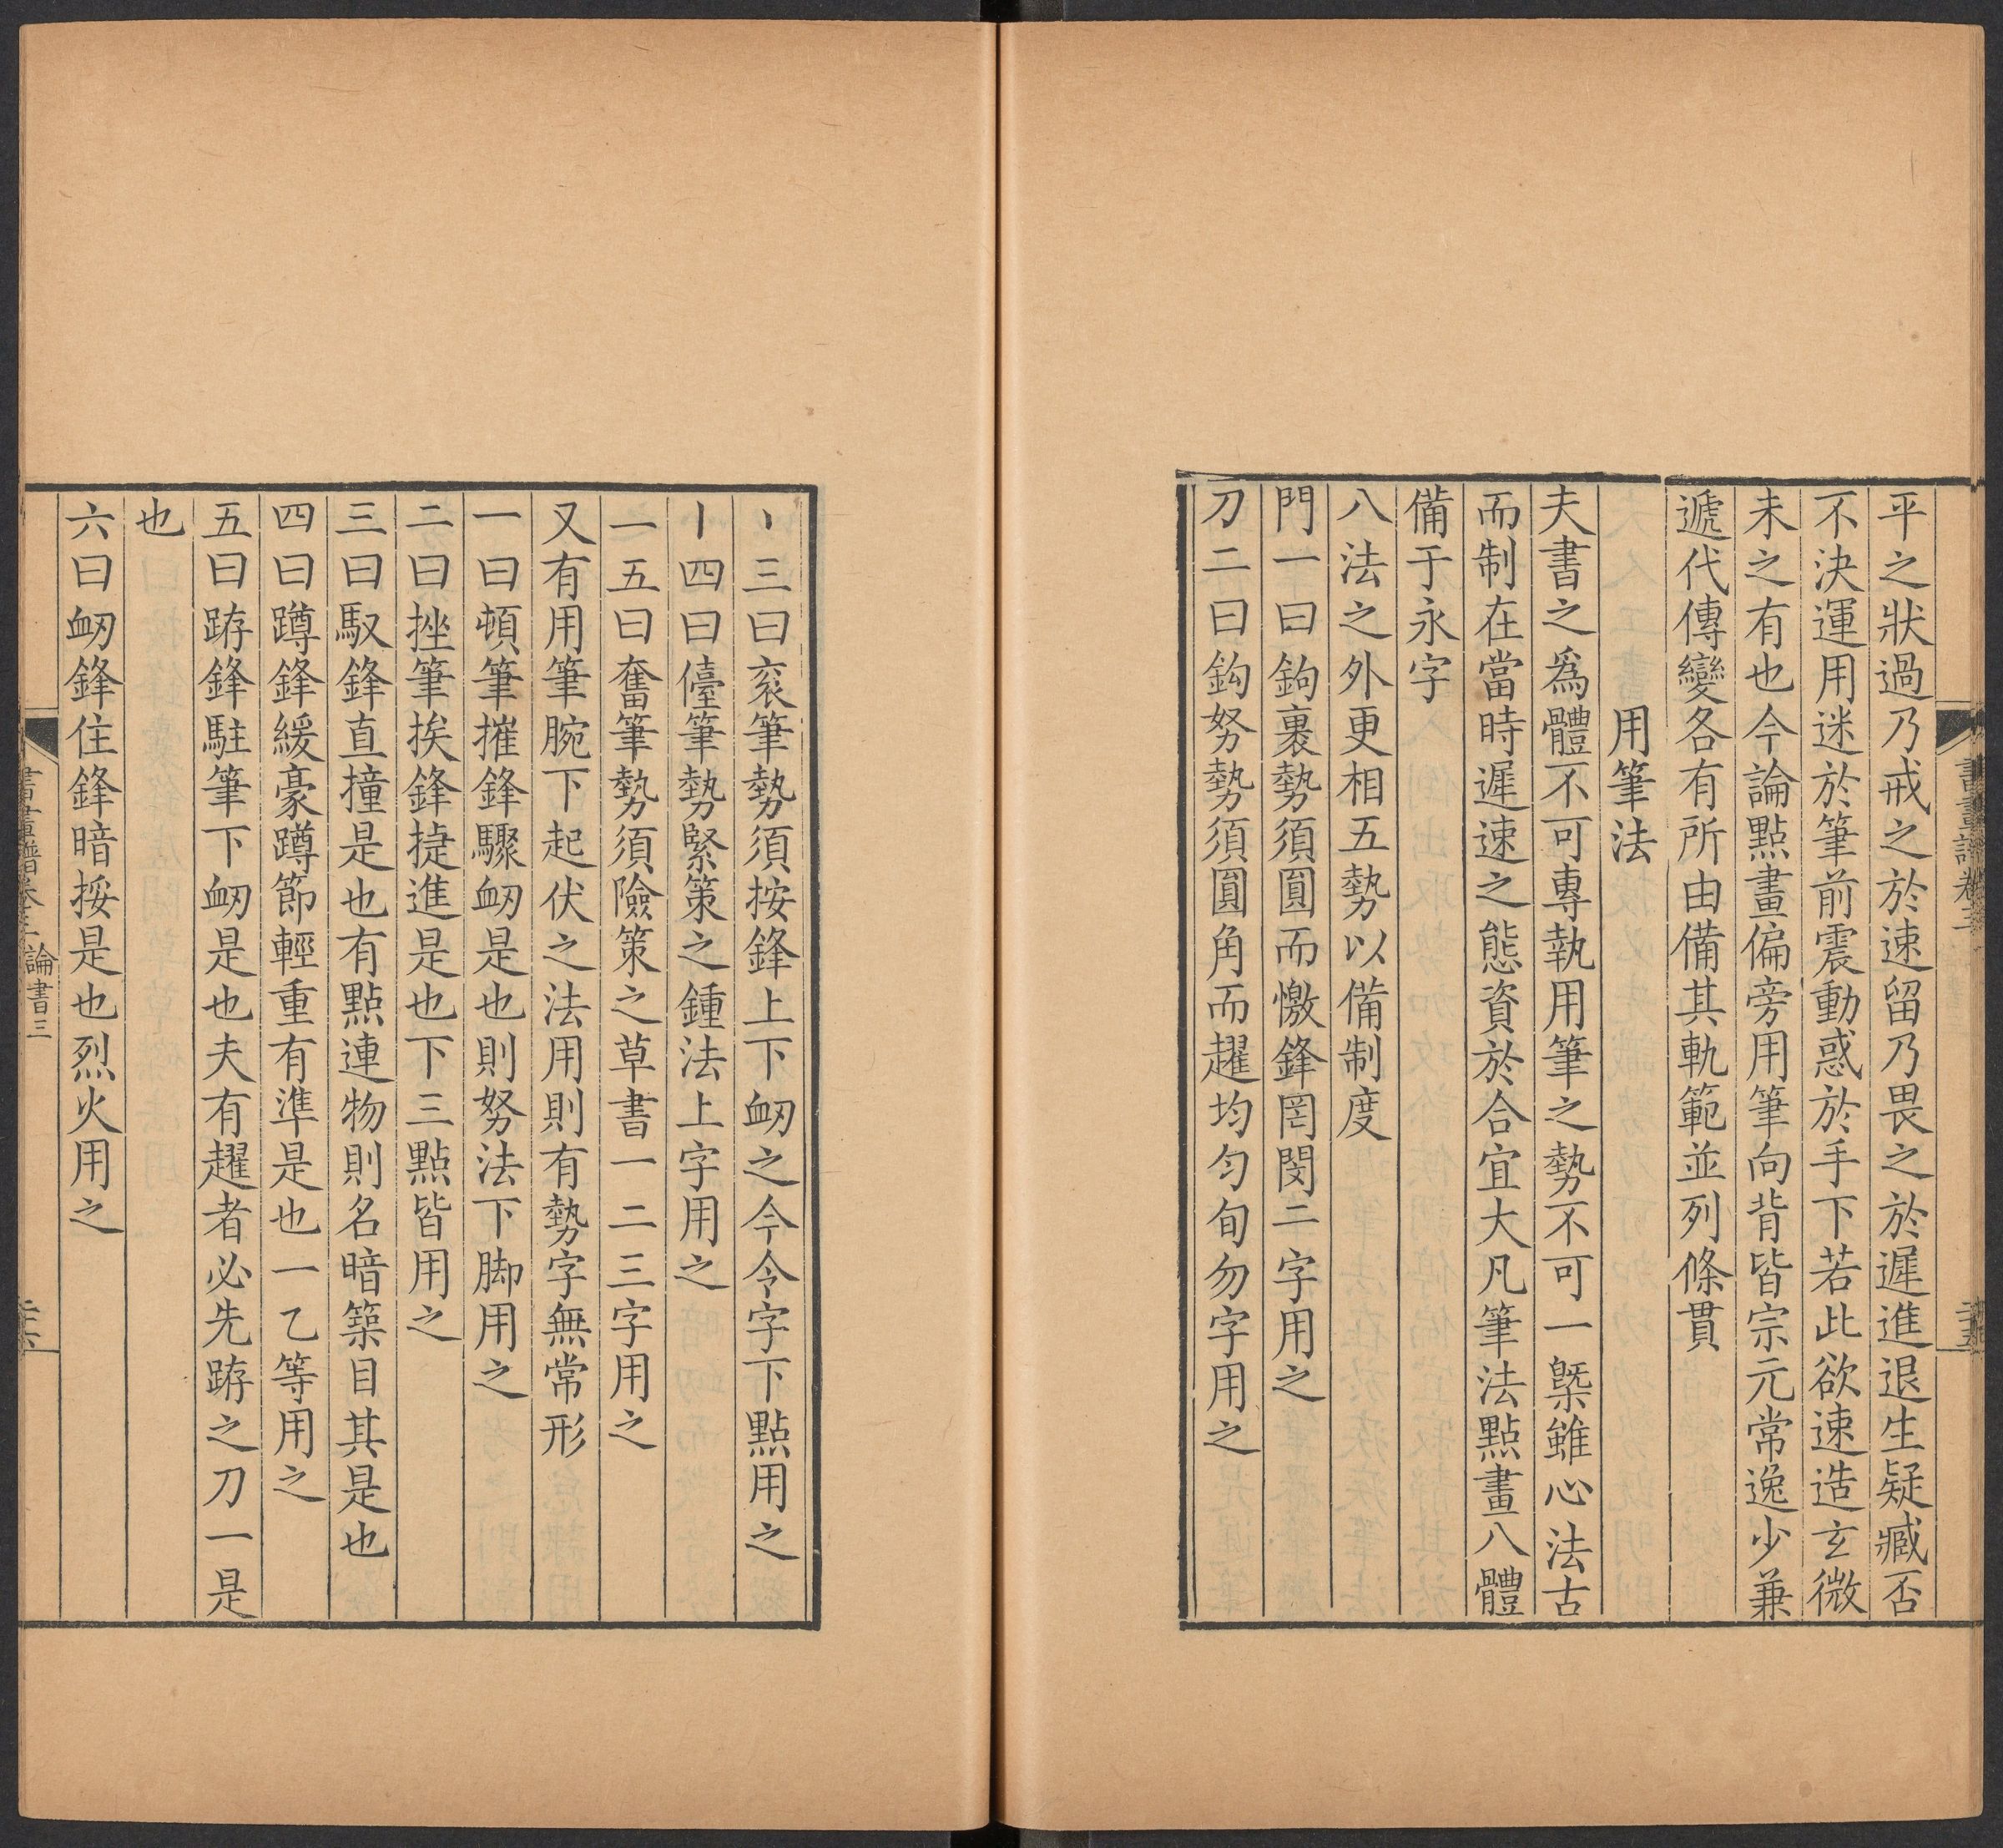 平之狀過乃戒之於速留乃畏之於遲進退生疑臧否
不決運用迷於筆前震動惑於手下若此欲速造玄微
未之有也今論點畫偏旁用筆向背皆宗元常逸少兼
遞代傳變各有所由備其軌範並列條貫
用筆法
夫書之爲體不可專執用筆之勢不可一槩雖心法古
而制在當時遲速之態資於合宜大凡筆法點畫八體
備于永字
八法之外更相五勢以備制度
門一曰鉤裹勢須圓而憿鋒罔閔二字用之
刀二曰鈎努勢須圓角而趯均匀旬勿字用之
丶三曰衮筆勢須按鋒上下衂之今令字下點用之
丨四曰儓筆勢緊策之鍾法上字用之
一五曰奮筆勢須險策之草書一二三字用之
又有用筆腕下起伏之法用則有勢字無常形
一曰頓筆摧鋒驟衂是也則努法下脚用之
二曰挫筆挨鋒捷進是也下三點皆用之
三曰馭鋒直撞是也有點連物則名暗築目其是也
四曰蹲鋒緩豪蹲節輕重有準是也一乙等用之
五曰䟴鋒駐筆下衂是也夫有趯者必先䟴之刀一是
也
六曰衂鋒住鋒暗挼是也烈火用之
書畫譜卷三
論書三